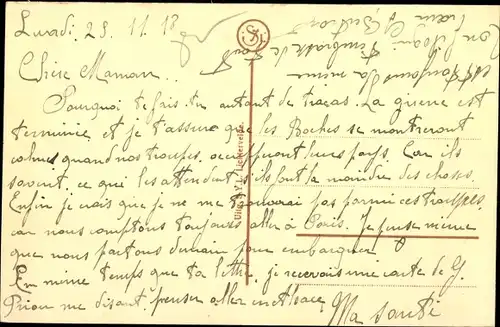 Lundi 25.11.18
Chère Maman..
Pourquoi te fais tu autant de tracas. La guerre est
terminée et je t'assure que les Boches se montreront
calmes quand nos troupes occuperont leurs pays. Car ils
savent ce que les attendent s'ils font la moindre des choses.
Enfin je crois que je ne me trouverai pas parmi ces troupes,
car nous comptons toujours aller à Paris. Je pense même
que nous partons demain pour embarquer
En même temps que ta lettre, je recevais une carte de G.
Priou me disant penser aller en Alsace
Ma santé
est toujours la même
t'embrasse de tout